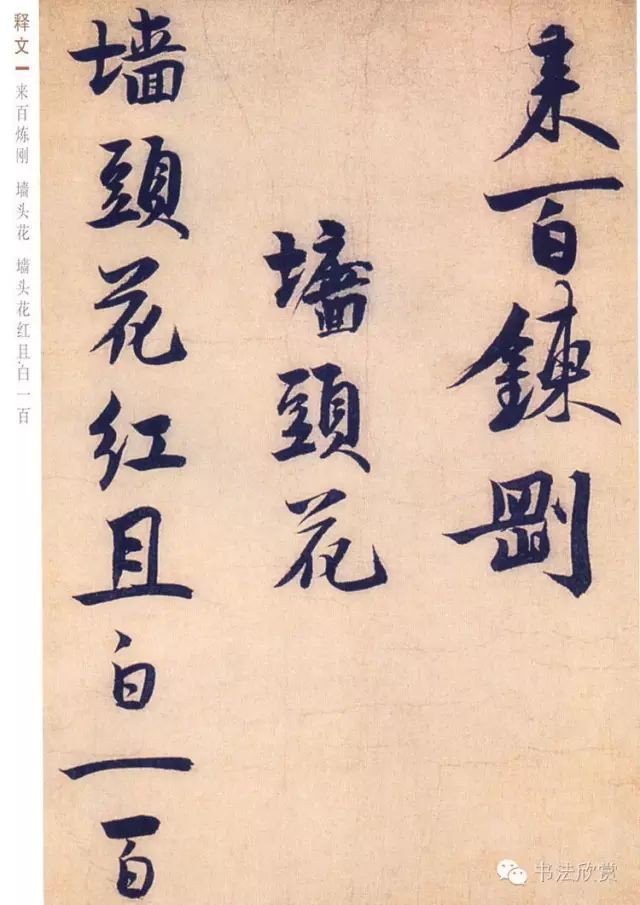 来百鍊剛
墙頭花
墙頭花红且白一百
释文
来百炼刚 墙头花 墙头花红且白一百
书法欣赏